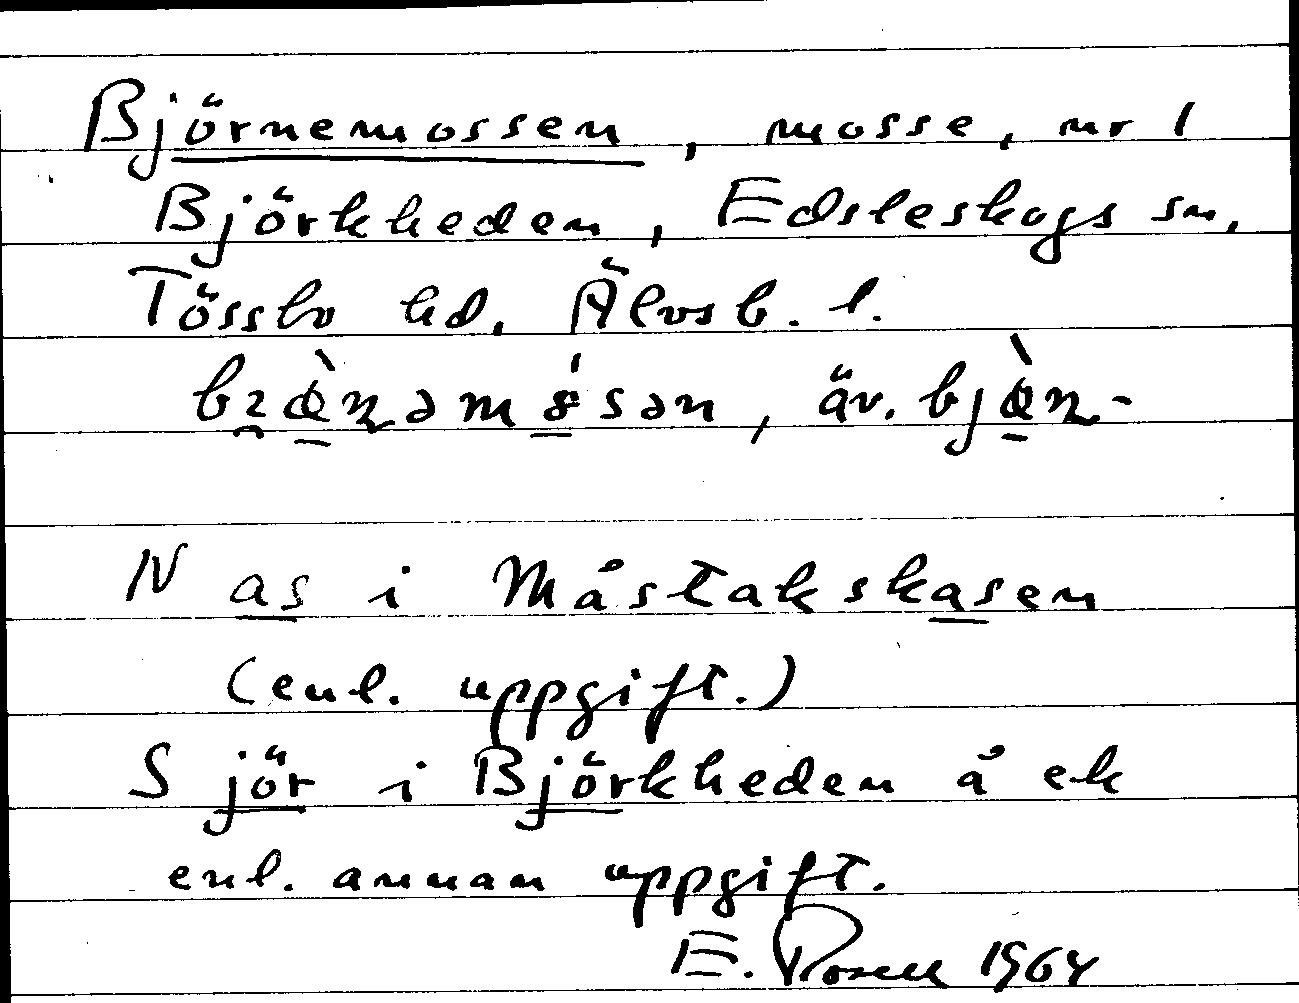 Björnemossen, mosse, nr 1
Björkheden, Edsleskogs sn,
Tössbo hd, Älvsb. l.
äv.
N as i Måstakskasen
(enl. uppgift.)
S jör i Björkheden å ek
enl. annan uppgift.
E. Rosell 1964